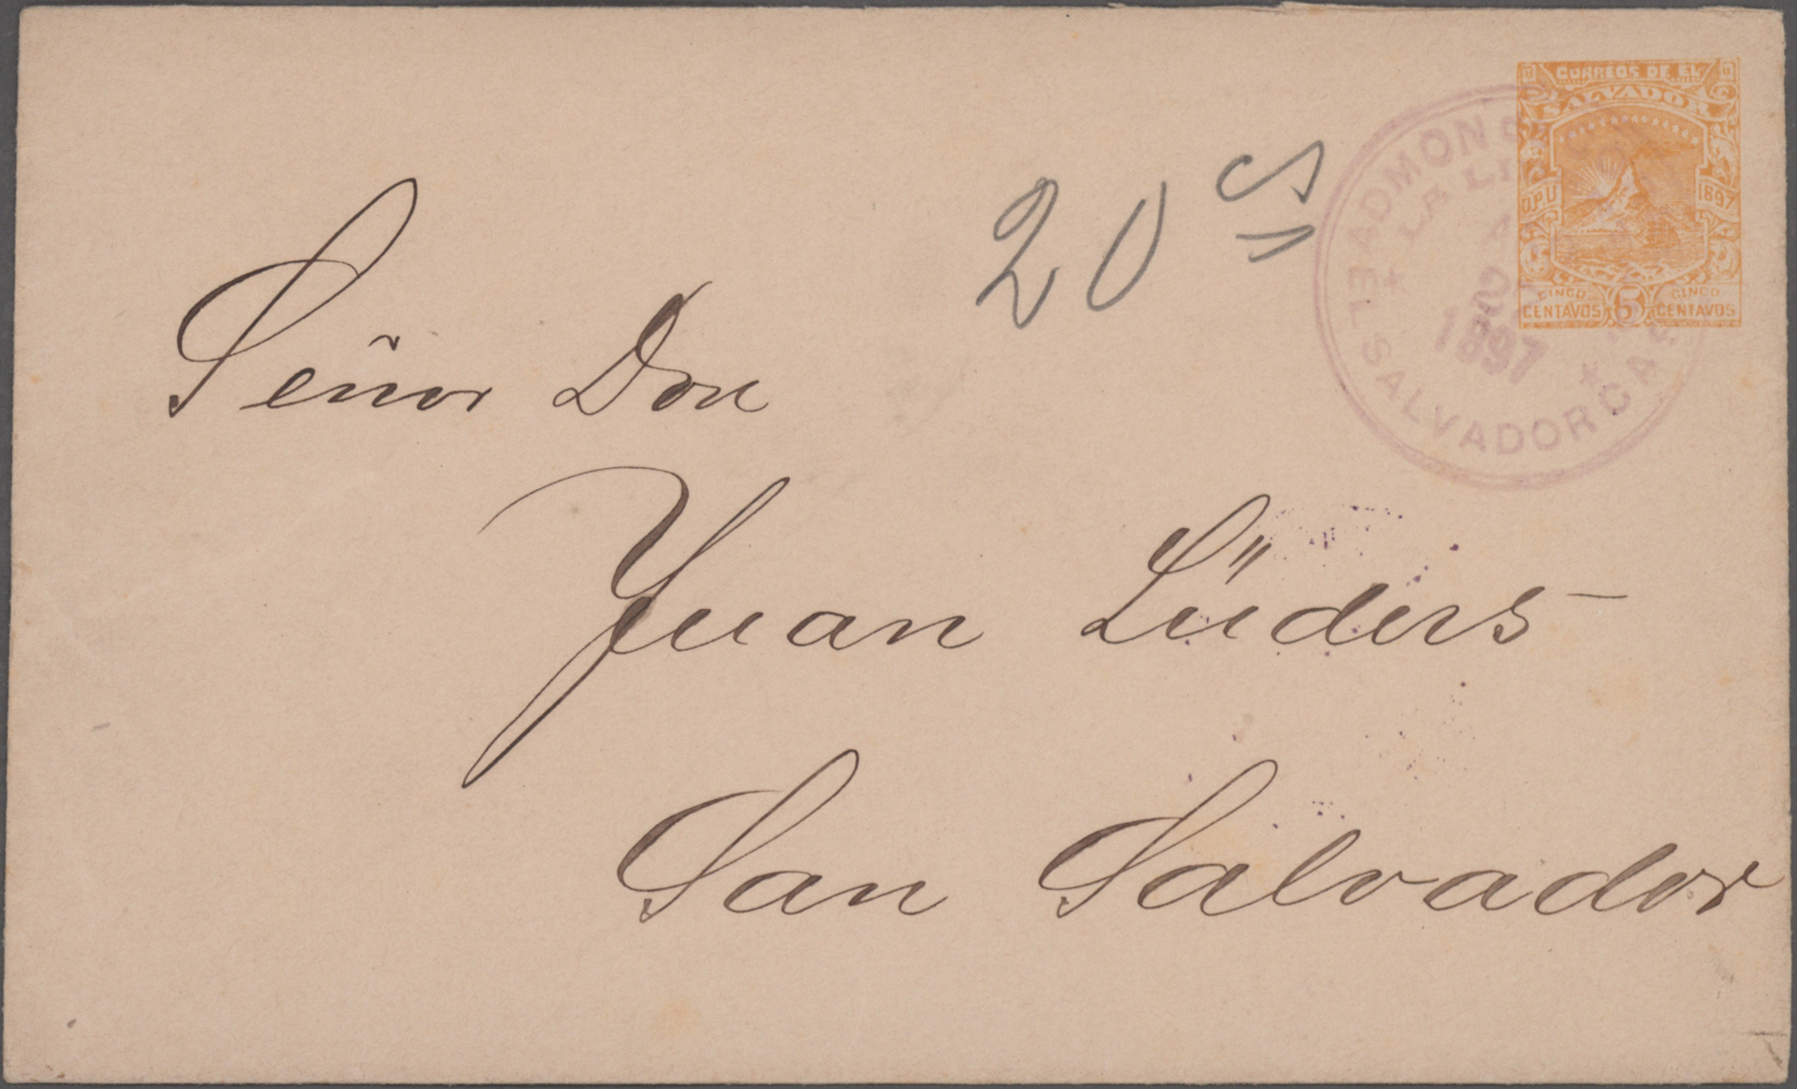 CORREOS DE EL
SALVADOR
U.P.U 1897
CINCO 5 CINCO
CENTAVOS CENTAVOS
ADMON
LA
1897
EL SALVADOR C.A.
20 cs
Señor Don
Juan Lüders
San Salvador